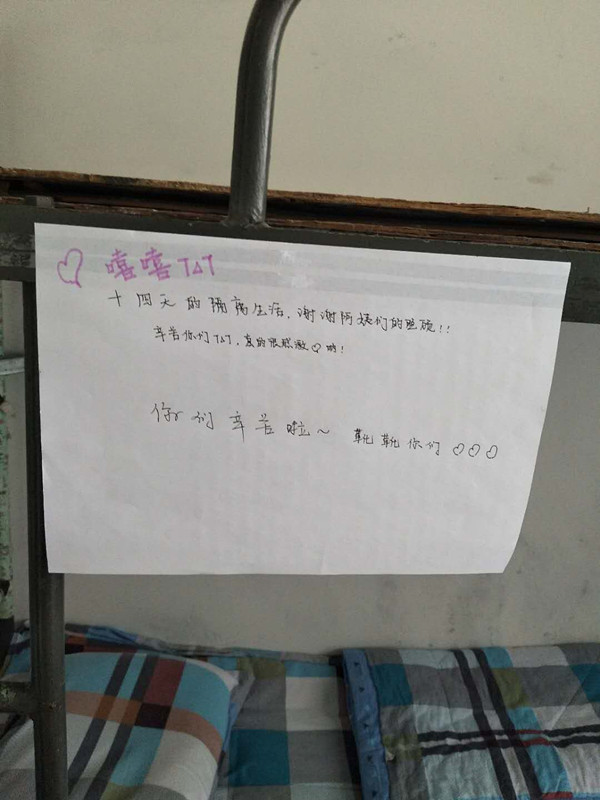 ♡ 嘻嘻TAT
十四天的隔离生活，谢谢阿姨们的照顾!!
辛苦你们TAT，真的很感激♡哟!
你们辛苦啦~ 靴靴你们♡♡♡